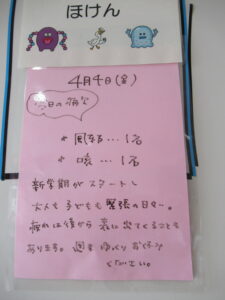 ほけん
4月4日(金)
今日の病欠
* 風邪…1名
* 咳…1名
新学期がスタートし
大人も子どもも緊張の日々〜。
疲れは後から表に出てくることも
あります。週末ゆっくりお休み
ください。